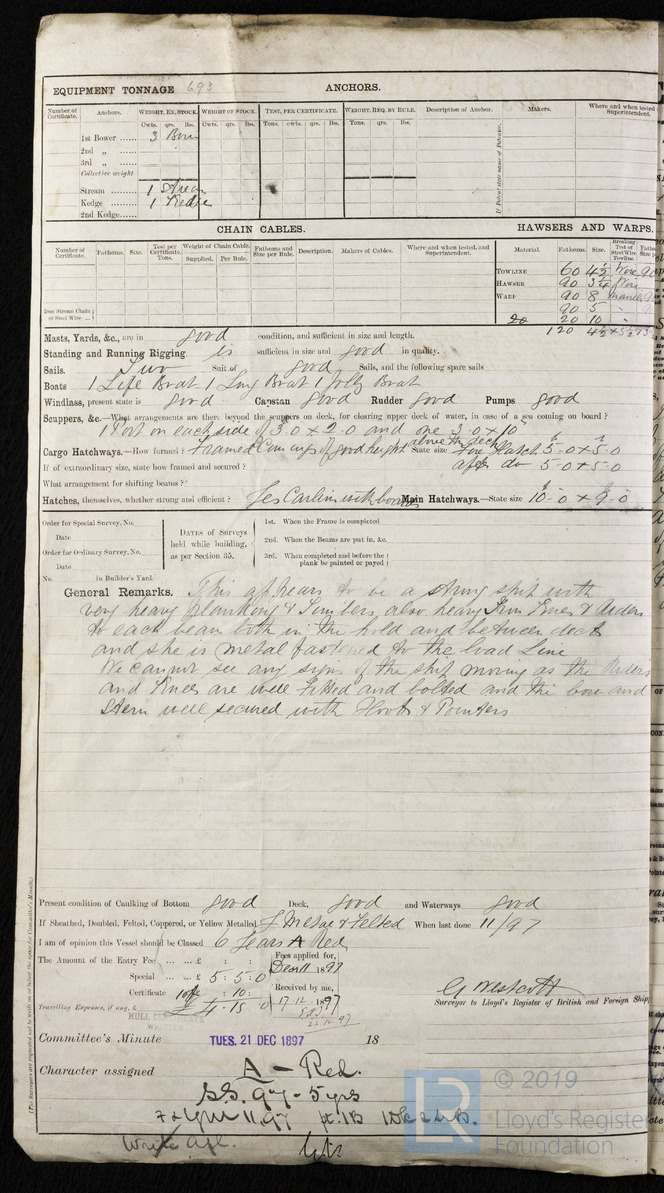 EQUIPMENT TONNAGE 693 ANCHORS.
Number of Certificate. Anchors. WEIGHT, EX. STOCK. WEIGHT OF STOCK. TEST, PER CERTIFICATE. WEIGHT, REQ. BY RULE. Description of Anchor. Makers. Where and when tested Superintendent.
Cwts. qrs. lbs. Cwts. qrs. lbs. Tons. cwts. qrs. lbs. Tons. cwts. qrs.
1st Bower ...... 3 Bow
2nd „ ......
3rd „ ......
Collective weight
Stream ...... 1 Stream
Kedge ...... 1 Kedge
2nd Kedge......
CHAIN CABLES. HAWSERS AND WARPS.
Number of Certificate. Fathoms. Size. Test per Certificate. Tons. Weight of Chain Cable. Supplied. Per Rule. Fathoms and Size per Rule. Description. Makers of Cables. Where and when tested, and Superintendent. Material. Fathoms. Size. Breaking Test of Steel Wire Towline.
TOWLINE 60 4½ Wire
HAWSER 90 3¼ Wire
WARP 90 8 Manila
90 5 "
20 10 "
120 4½
Masts, Yards, &c., are in good condition, and sufficient in size and length.
Standing and Running Rigging is sufficient in size and good in quality.
Sails. Two Suit of good Sails, and the following spare sails
Boats 1 Life Boat 1 Long Boat 1 Jolly Boat
Windlass, present state is good Capstan good Rudder good Pumps good
Scuppers, &c.—What arrangements are there beyond the scuppers on deck, for clearing upper deck of water, in case of a sea coming on board?
1 Port on each side of 3.0 x 2.0 and one 3.0 x 10"
Cargo Hatchways.—How formed? Framed Comings of good height above the deck State size Fore Hatch 5-0 x 5-0
If of extraordinary size, state how framed and secured? after do 5-0 x 5-0
What arrangement for shifting beams?
Hatches, themselves, whether strong and efficient? Yes Carlins with boards Main Hatchways.—State size 10-0 x 9-0
Order for Special Survey, No.
Date
Order for Ordinary Survey, No.
Date
No. in Builder's Yard.
DATES of Surveys held while building, as per Section 35.
1st. When the Frame is completed
2nd. When the Beams are put in, &c.
3rd. When completed and before the plank be painted or payed
General Remarks. This appears to be a strong ship with
very heavy planking & Timbers, also heavy Iron Knees & Riders
to each beam both in the hold and between decks
and she is metal fastened to the load Line
We cannot see any signs of the ship moving as the Riders
and Knees are well fitted and bolted and the bow and
Stern well secured with Hooks & Pointers
Present condition of Caulking of Bottom good Deck, good and Waterways good
If Sheathed, Doubled, Felted, Coppered, or Yellow Metalled Y Metal & Felted When last done 11/97
I am of opinion this Vessel should be Classed 6 Years A Red
The Amount of the Entry Fee ... ... ... £ : :
Special ... ... £ 5 : 5 : 0
Certificate : 10 :
Travelling Expenses, if any, £ 4 . 15 . 0
Fees applied for, Dec 11 1897
Received by me, 17 12 1897
22 12 97
G Westcott
Surveyor to Lloyd's Register of British and Foreign Ship
Committee's Minute TUES. 21 DEC 1897 18
Character assigned A – Red.
SS. 97 – 5 yrs
11.97
© 2019
Lloyd's Register
Foundation
LR